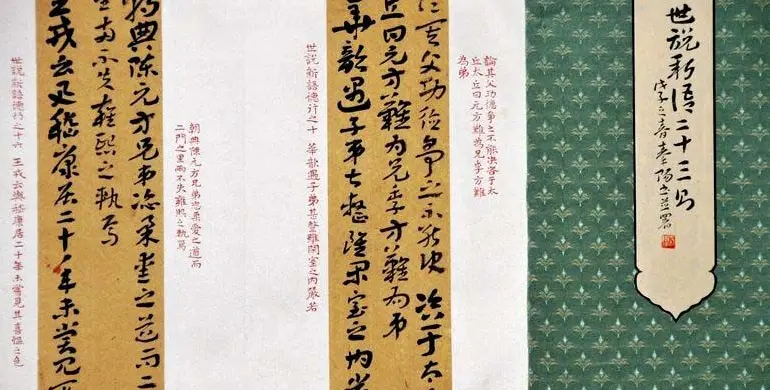 世說新語二十三則
戊子之春
論其父功德爭之不能決咨于太
丘太丘曰元方難為兄季方難
為弟
其父功德爭之不能決咨于太
丘曰元方難為兄季方難為弟
華歆遇子弟甚整雖閑室之內
世說新語德行之十 華歆遇子弟甚整雖閑室之內嚴若
朝典陳元方兄弟恣柔愛之道而
二門之里兩不失雍熙之軌焉
典陳元方兄弟恣柔愛之道而二
里兩不失雍熙之軌焉
王戎云與嵇康居二十年未嘗見
世說新語德行之十六 王戎云與嵇康居二十年未嘗見其喜慍之色